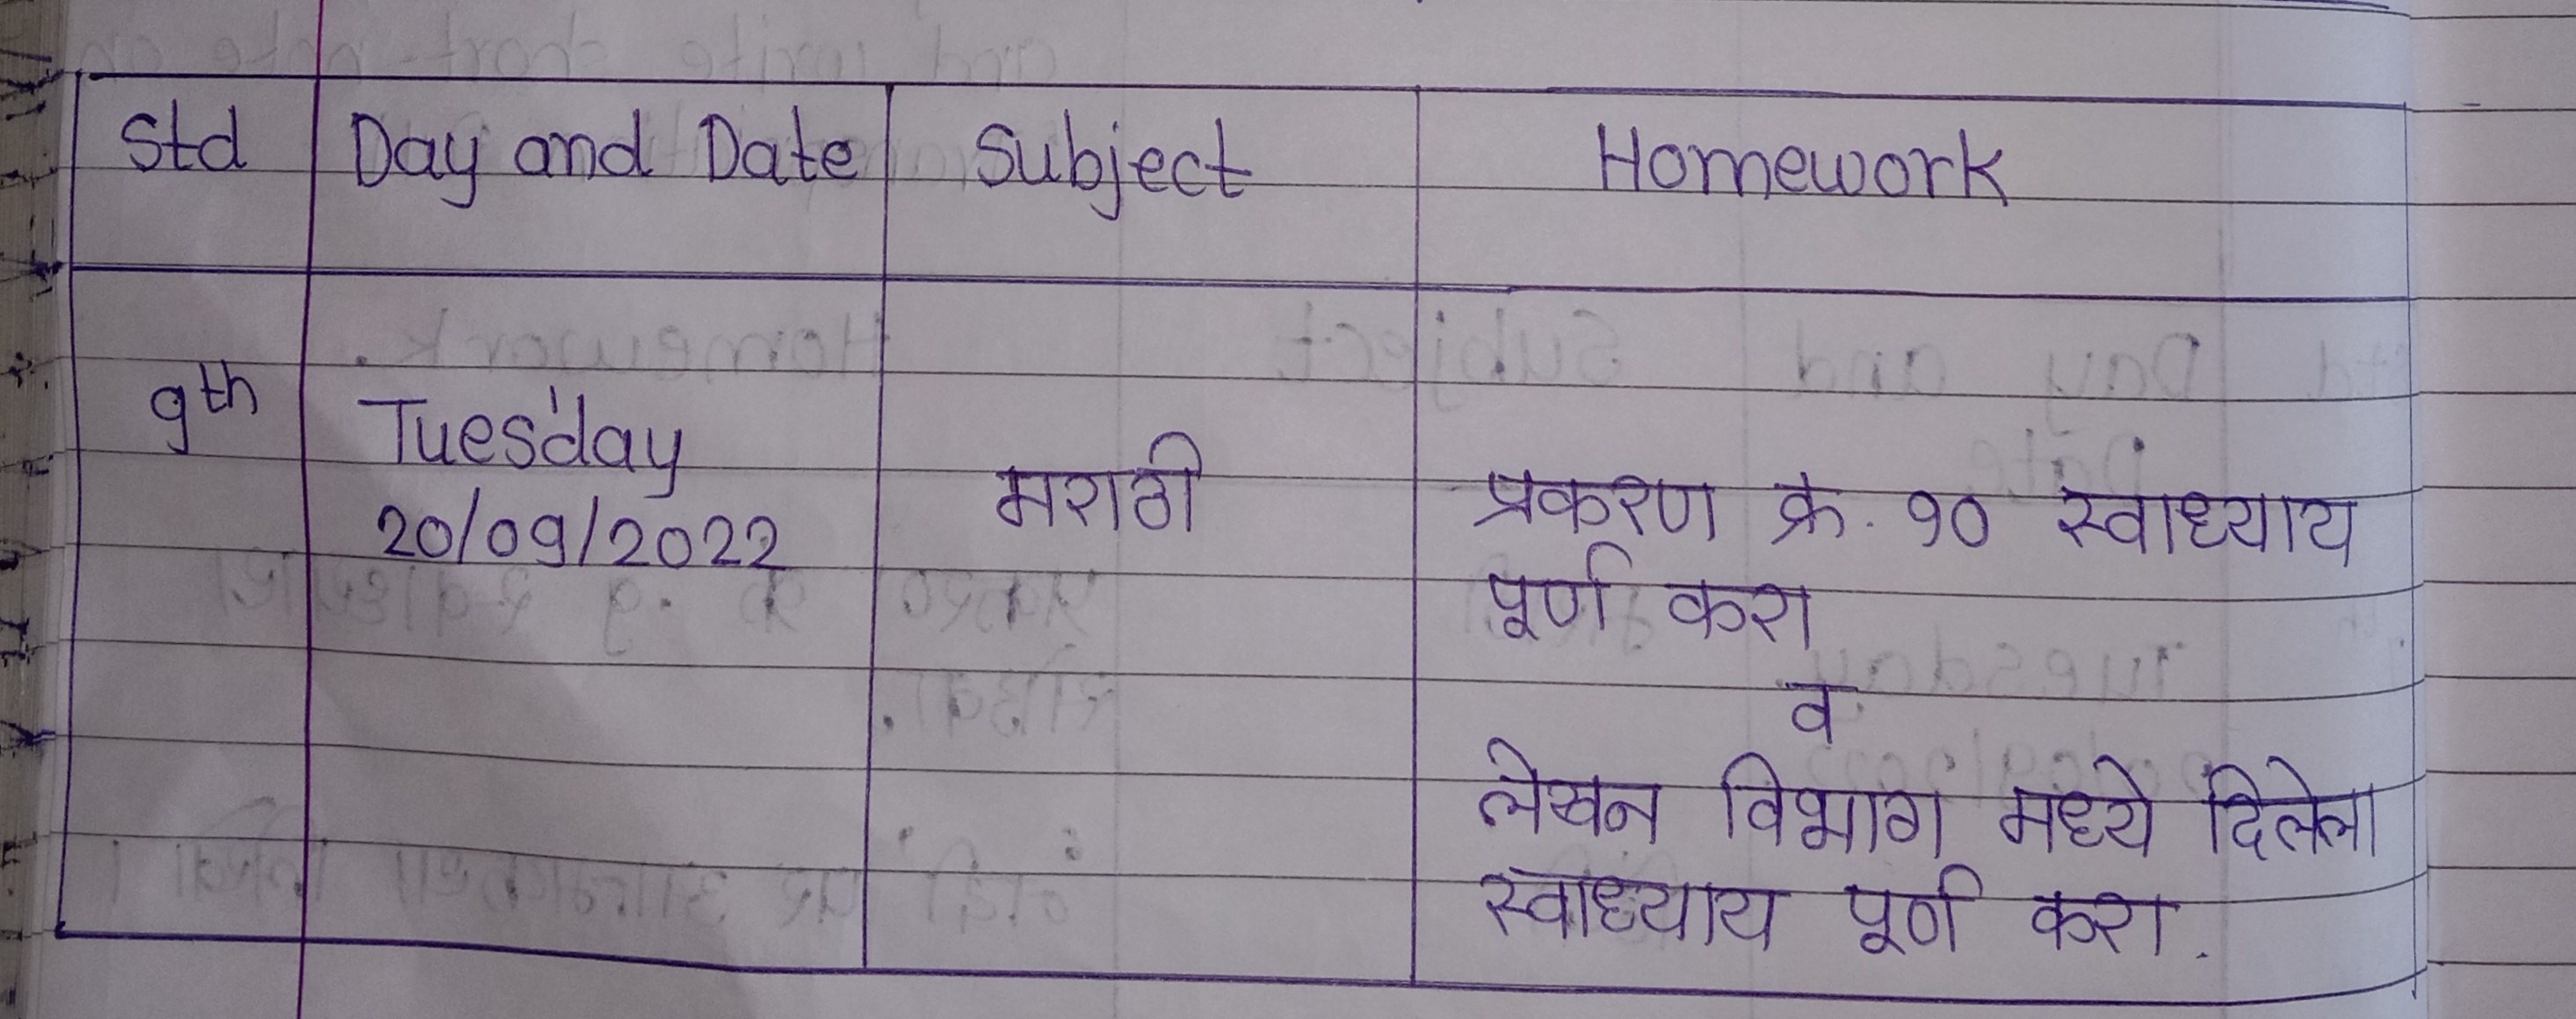 Std Day and Date Subject Homework
9th Tuesday
20/09/2022 मराठी प्रकरण क्र. १० स्वाध्याय
पूर्ण करा
व
लेखन विभाग मध्ये दिलेला
स्वाध्याय पूर्ण करा.